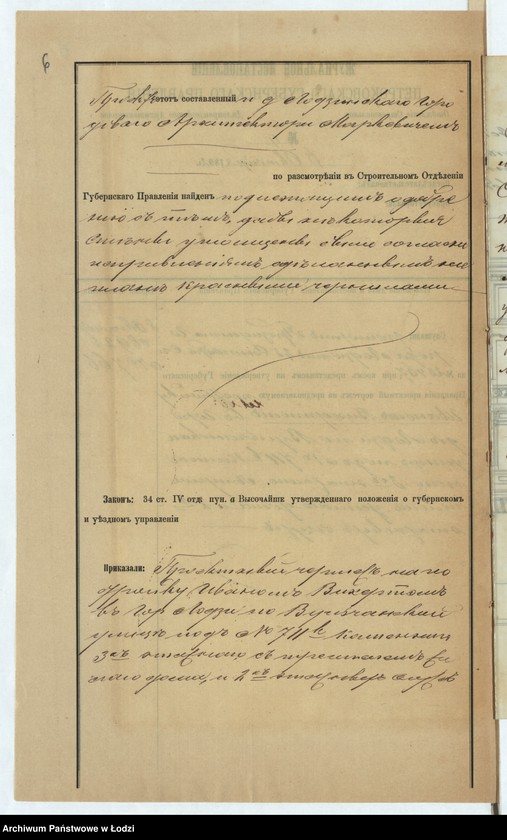 6
Проектъ этотъ составленный и д Лодзинскаго Горо
доваго Архитектора Маркевичемъ
по разсмотрѣніи въ Строительномъ Отдѣленіи
Губернскаго Правленія найденъ подлежащимъ одобре
нію съ тѣмъ, чтобы нѣкоторыя
стѣны утолщены были согласно
исправленіямъ сдѣланнымъ на
планѣ красными чернилами
Законъ: 34 ст. IV отд: пун. а Высочайше утвержденнаго положенія о губернскомъ
и уѣздномъ управленіи
Приказали: Проектный чертежъ на по
стройку Иваномъ
въ гор Лодзи по
улицѣ подъ № 711 каменнаго
3хъ этажнаго съ жи
лаго дома, и 2хъ этажныхъ
Archiwum Państwowe w Łodzi